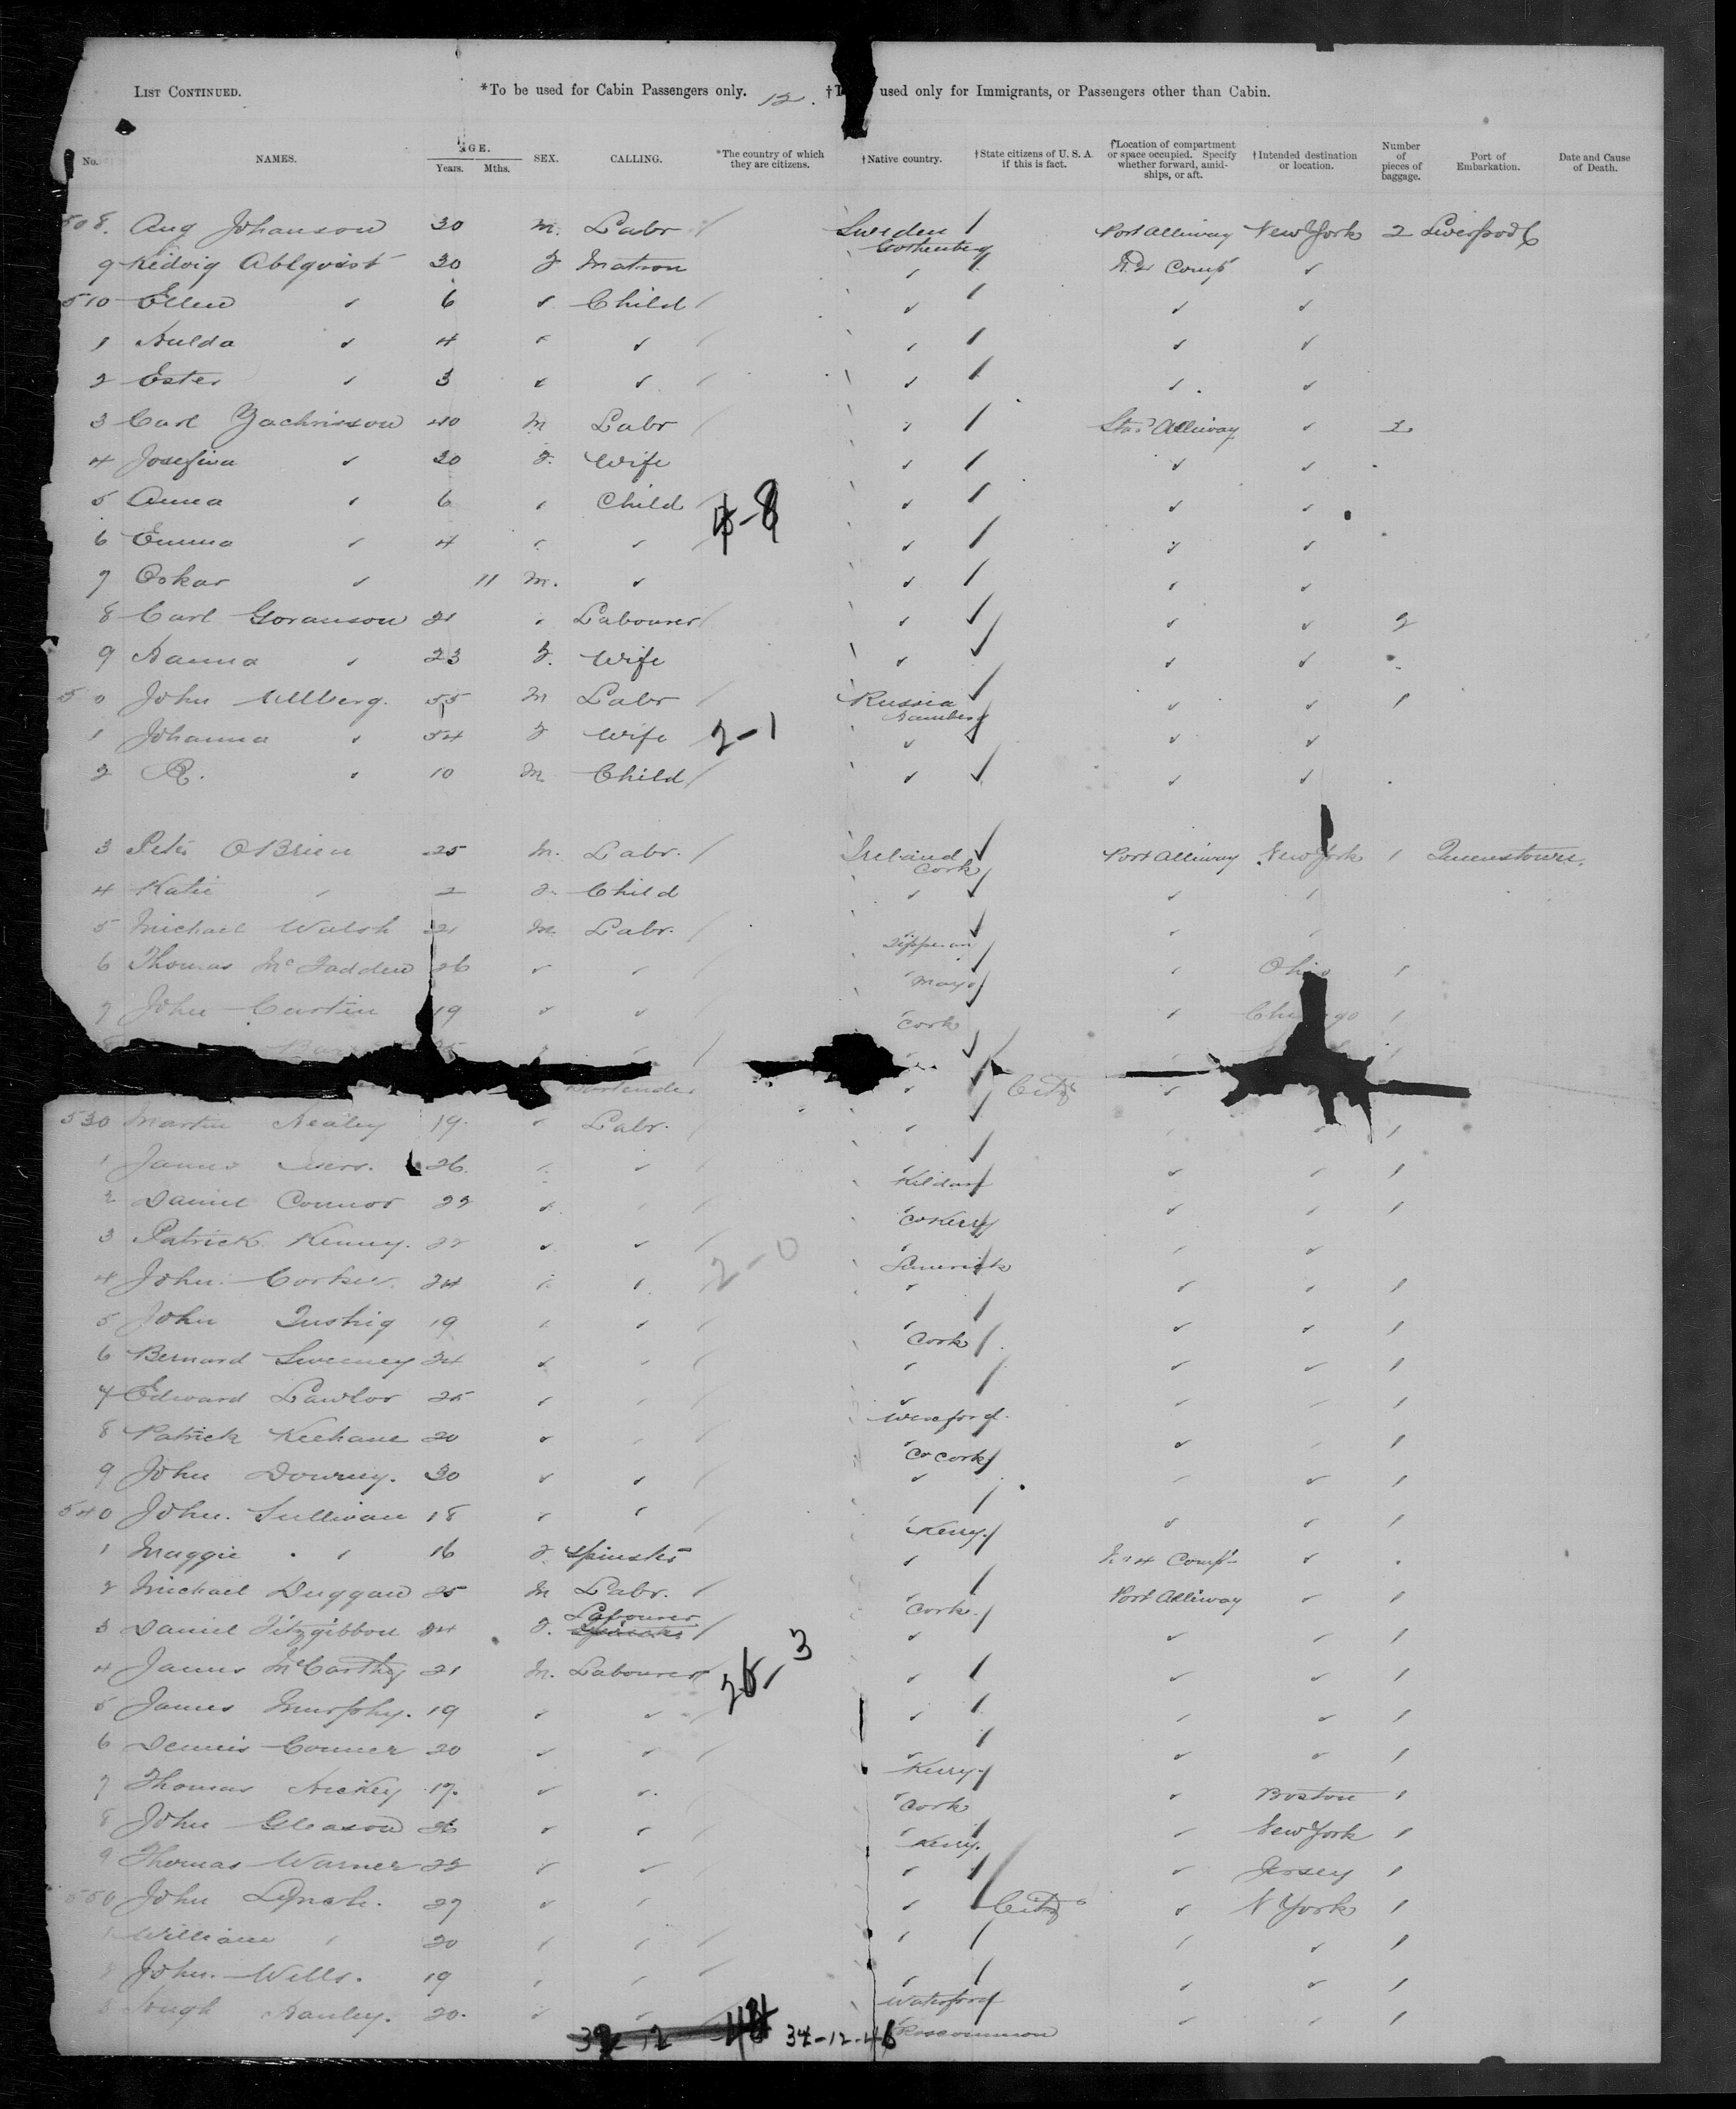 LIST CONTINUED. *To be used for Cabin Passengers only. 12. †T used only for Immigrants, or Passengers other than Cabin.
No. NAMES. AGE. Years. Mths. SEX. CALLING. *The country of which they are citizens. †Native country. †State citizens of U. S. A. if this is fact. †Location of compartment or space occupied. Specify whether forward, amidships, or aft. †Intended destination or location. Number of pieces of baggage. Port of Embarkation. Date and Cause of Death.
508. Aug Johanson 30 M. Labr / Sweden Gothenberg / Port Alliway New York 2 Liverpool
9 Hedvig Ahlqvist 30 F Matron ✓ / No 2 Comp ✓
510 Ellen ✓ 6 ✓ Child / ✓ / ✓ ✓
1 Hulda ✓ 4 ✓ ✓ / ✓ / ✓ ✓
2 Ester ✓ 3 ✓ ✓ / ✓ / ✓ ✓
3 Carl Zachrisson 40 M Labr / ✓ / Stad Alliway ✓ 2
4 Josefina ✓ 30 F. Wife ✓ / ✓ ✓
5 Anna ✓ 6 ✓ Child / ✓ / ✓ ✓
4-8
6 Emma ✓ 4 ✓ ✓ / ✓ / ✓ ✓
7 Oskar ✓ 11 M. ✓ ✓ / ✓ ✓
8 Carl Goranson 21 ✓ Labourer / ✓ ✓ ✓ 2
9 Hanna ✓ 23 F. Wife ✓ / ✓ ✓
5 0 John Ullberg. 55 M Labr / Russia / ✓ ✓ 1
1 Johanna ✓ 54 F Wife 2-1 ✓ / ✓ ✓
2 R. ✓ 10 M Child / ✓ ✓ ✓ ✓
3 Peter OBrien 25 M. Labr. / Ireland Cork ✓ Port Alliway New York 1 Queenstown.
4 Katie ✓ 2 F. Child ✓ ✓ ✓
5 Michael Walsh 21 M Labr. / Tipperary ✓ ✓ ✓
6 Thomas McFadden 26 ✓ ✓ / Mayo / ✓ Ohio 1
7 John Curtin 19 ✓ ✓ / Cork / ✓ Chicago 1
Bartender ✓ Citz ✓
530 Martin Nealey 19. ✓ Labr. / ✓ / ✓ 1
1 James 26. ✓ ✓ / Kildare / ✓ ✓ 1
2 Daniel Connor 22 ✓ ✓ / Co Kerry ✓ ✓ 1
3 Patrick Kenny. 22 ✓ ✓ / Limerick ✓ ✓
2-0
4 John 24 ✓ ✓ / ✓ ✓ ✓ 1
5 John 19 ✓ ✓ / Cork / ✓ ✓ 1
6 Bernard Sweeney 24 ✓ ✓ / ✓ / ✓ ✓ 1
7 Edward Lawlor 25 ✓ ✓ / Wexford. ✓ ✓ 1
8 Patrick Keehane 20 ✓ ✓ / Co Cork / ✓ ✓ 1
9 John Downey. 30 ✓ ✓ / ✓ ✓ ✓ 1
540 John. Sullivan 18 ✓ ✓ / Kerry. / ✓ ✓ 1
1 Maggie ✓ 16 F Spinster ✓ No 4 Comp ✓
2 Michael Duggan 25 M Labr. / Cork. / Port Alliway ✓ 1
3 Daniel Fitzgibbon 24 F. Labourer Spinster / ✓ ✓ ✓ 1
4 James McCarthy 21 M. Labourer / ✓ / ✓ ✓ 1
3
5 James Murphy. 19 ✓ ✓ / ✓ / ✓ ✓ 1
6 Dennis Conner 20 ✓ ✓ / Kerry / ✓ ✓ 1
7 Thomas Hickey 17. ✓ ✓ Cork ✓ Boston 1
8 John Gleason 26 ✓ ✓ / Kerry. / ✓ New York 1
9 Thomas Warner 22 ✓ ✓ / ✓ / ✓ Jersey 1
550 John Lynch. 27 ✓ ✓ ✓ Citz ✓ N York 1
1 William ✓ 20 ✓ ✓ / ✓ / ✓ ✓ 1
2 John. Wells. 19 ✓ ✓ / Waterford / ✓ ✓ 1
3 Hugh Hanley. 20. ✓ ✓ Roscommon ✓ ✓ 1